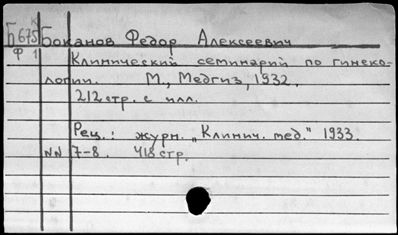 К
Б 675 Боканов Федор Алексеевич
Ф 1
Клинический семинарий по гинеко-
логии. М., Медгиз, 1932.
212 стр. с илл.
Рец.: журн. „Клинич. мед." 1933.
NN 7-8. 418 стр.